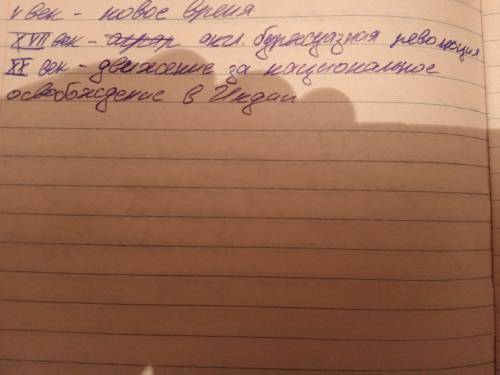 V век - новое время
XVII век - англ. буржуазная революция
XX век - движение за национальное
освобождение в Индии